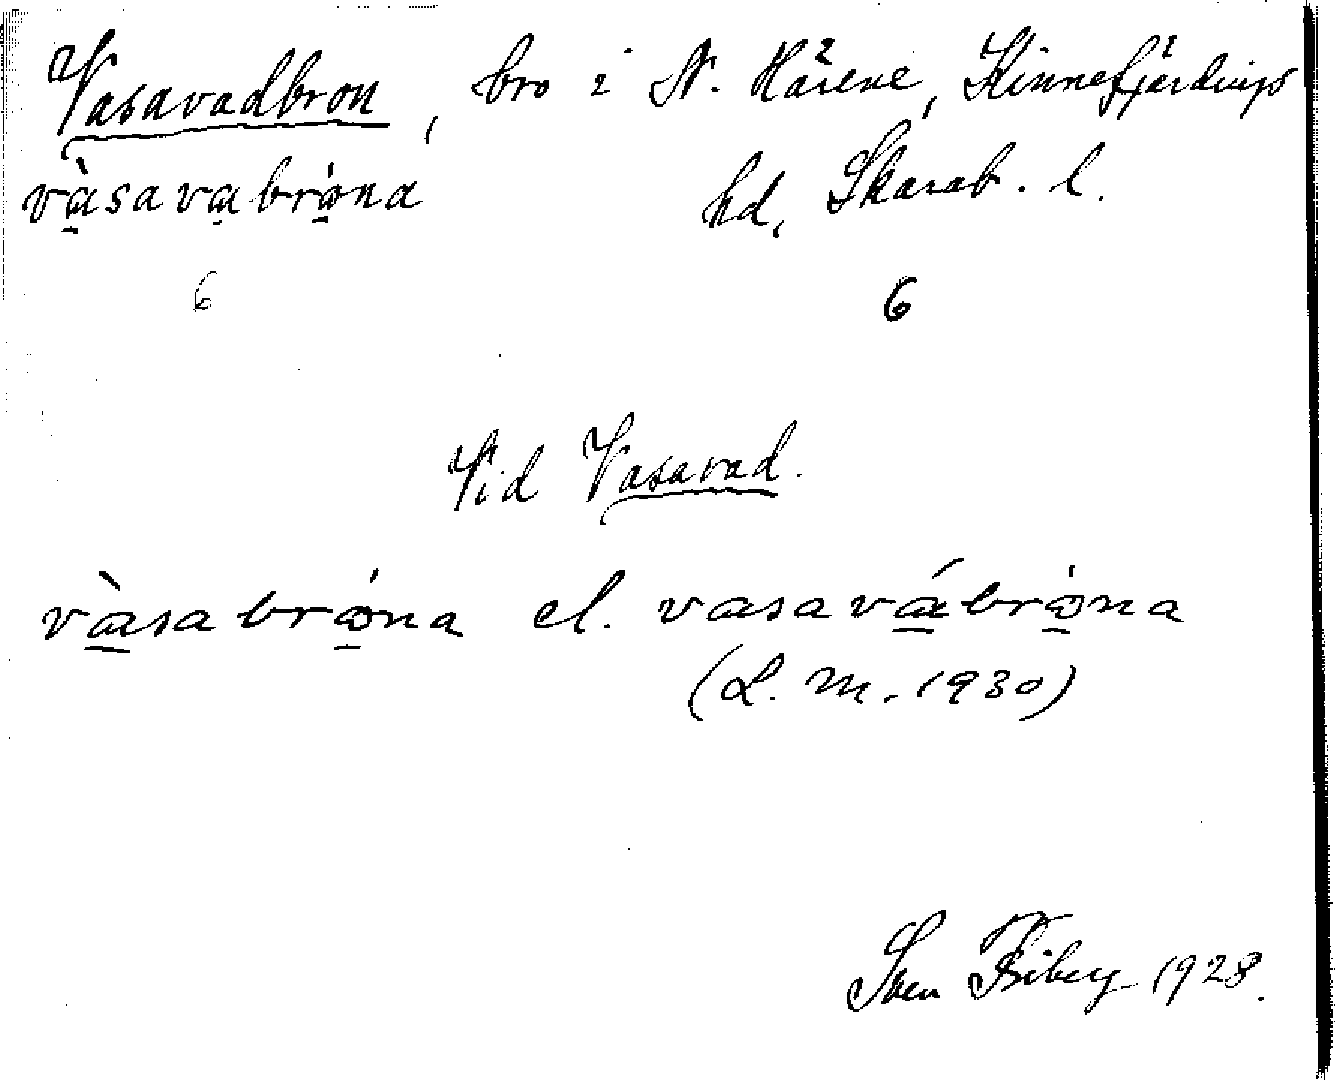 Vasavadbron, bro i N. Härene, Kinnefjärdings
vàsavabrǿna hd, Skarab. l.
6 6
Vid Vasavad.
vàsabrǿna el. vasavábrǿna
(L. M. 1930)
Sven Friberg 1928.